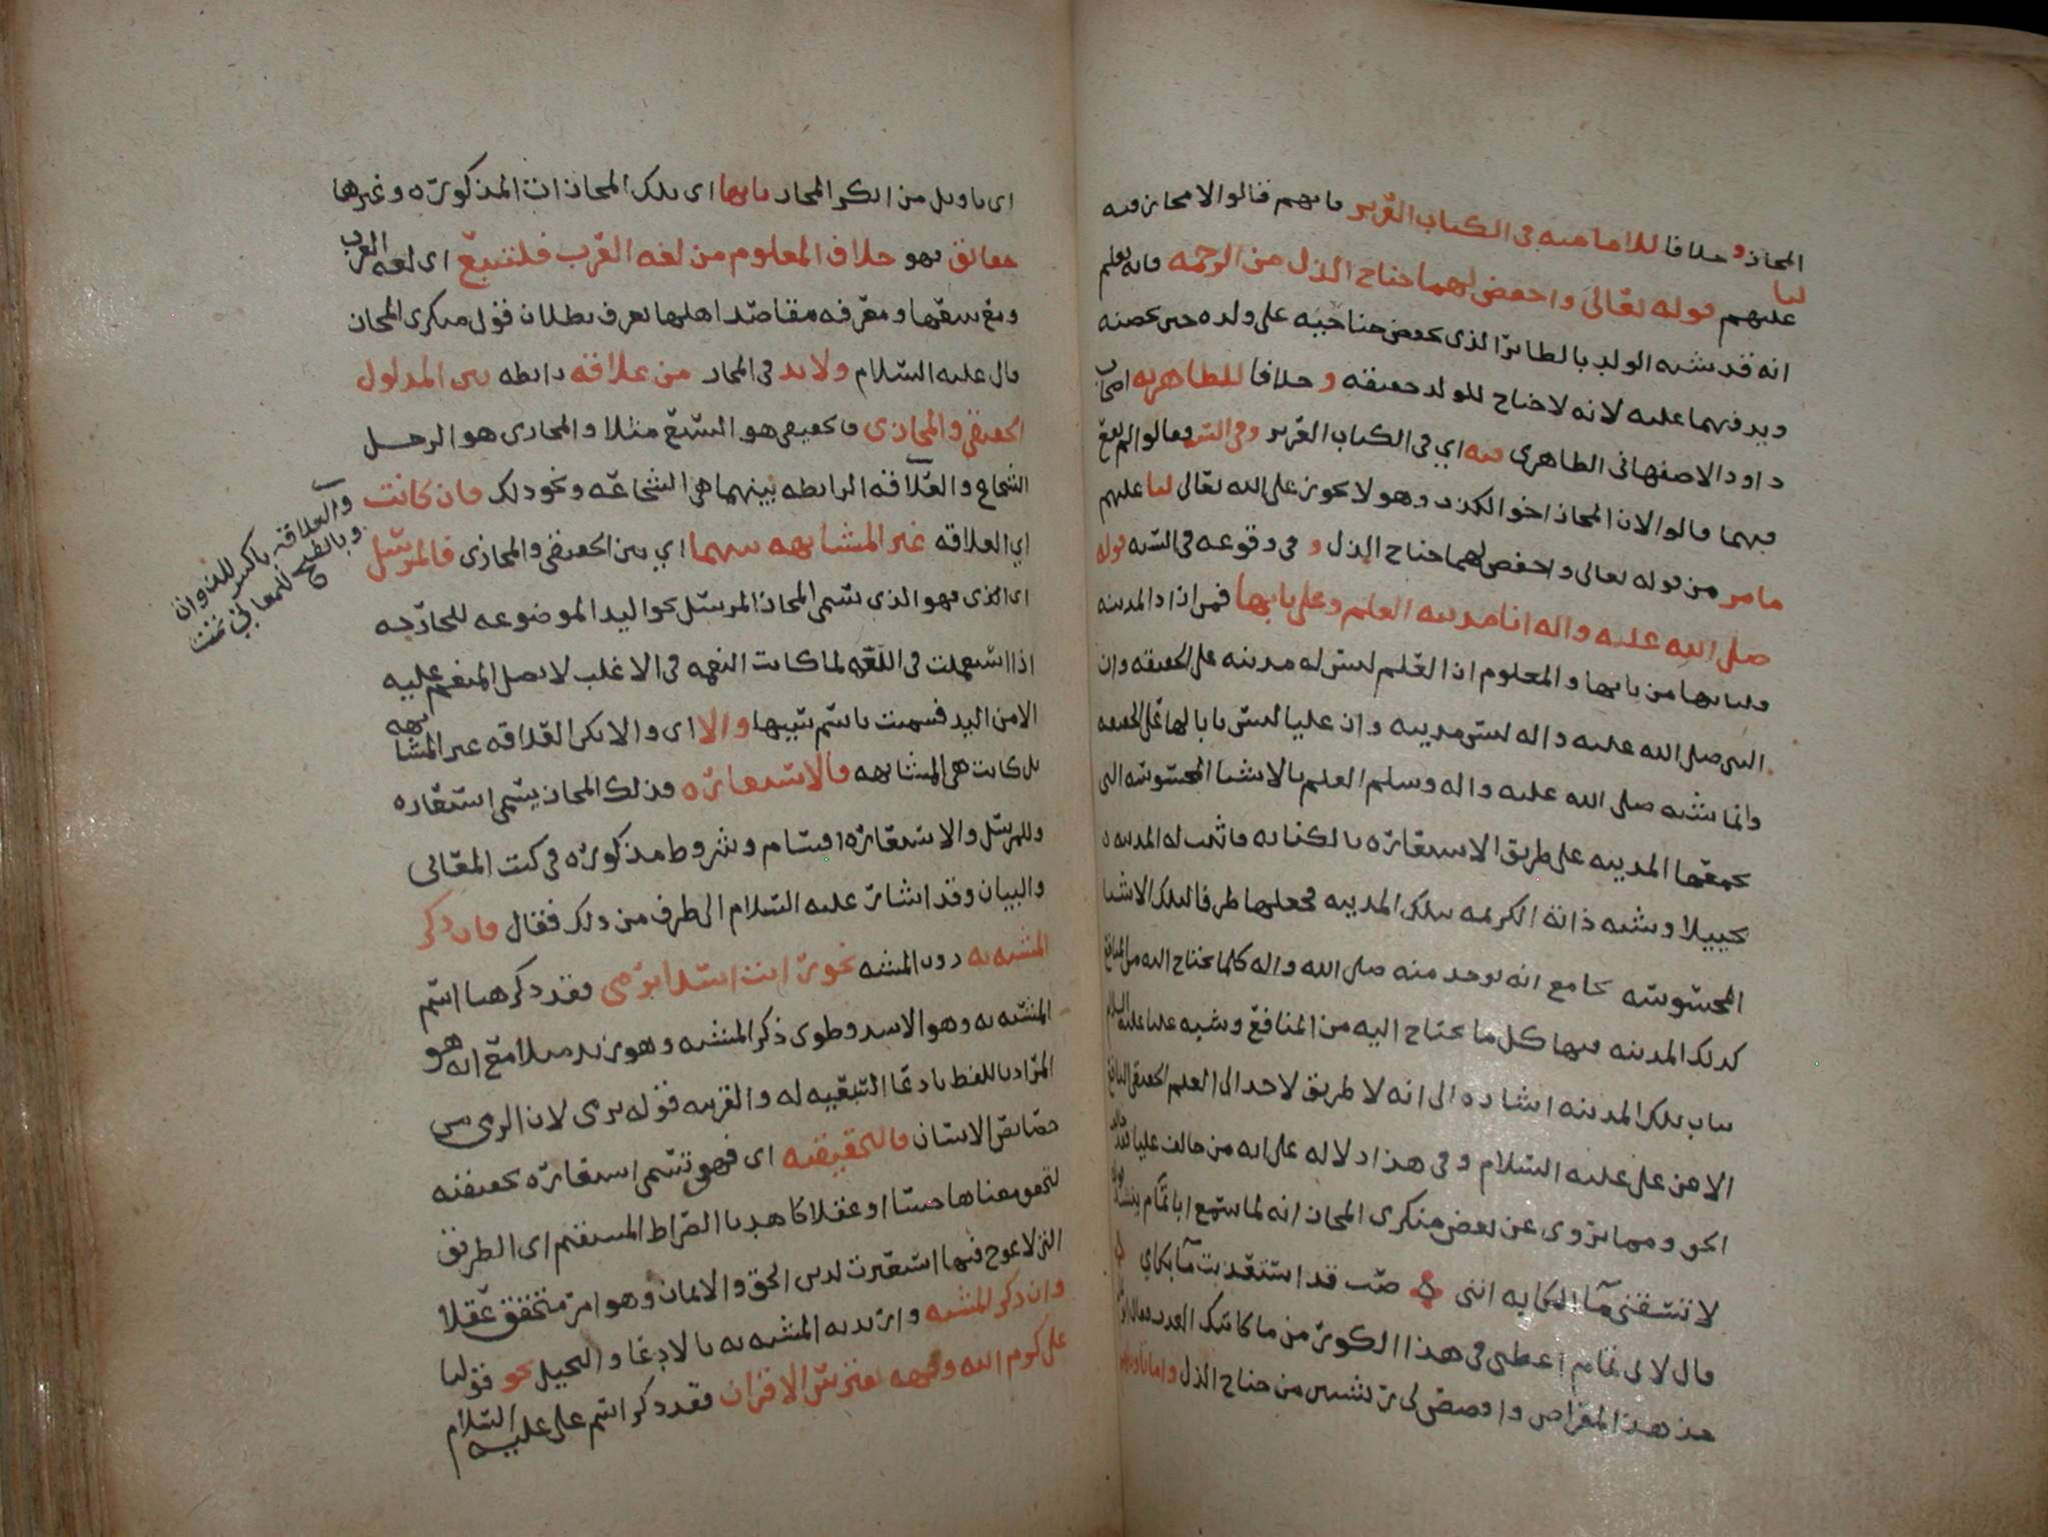 المجاز و خلافا للامامية في الكتاب العزيز فانهم قالوا لا مجاز فيه
لنا
عليهم قوله تعالى واخفض لهما جناح الذل من الرحمة فانه يعلم
انه قد شبه الولد بالطائر الذي يخفض جناحيه على ولده حين يحضنه
ويرفهما عليه لانه لا جناح للولد حقيقة و خلافا للظاهرية اصحاب
داود الاصفهاني الظاهري فيه اي في الكتاب العزيز وفي السنة فقالوا لم يقع
فيهما قالوا لان المجاز اخو الكذب وهو لا يجوز على الله تعالى لنا عليهم
ما مر من قوله تعالى واخفض لهما جناح الذل و في وقوعه في السنة قوله
صلى الله عليه واله انا مدينة العلم وعلي بابها فمن اراد المدينة
فليأتها من بابها والمعلوم ان العلم ليس له مدينة على الحقيقة وان
النبي صلى الله عليه واله ليس مدينة وان عليا ليس بابا لها على الحقيقة
وانما شبه صلى الله عليه واله وسلم العلم بالاشيا المحسوسة التي
تجمعها المدينة على طريق الاستعارة بالكناية فاثبت له المدينة
تخييلا وشبه ذاته الكريمة بتلك المدينة فجعلها ظرفا لتلك الاشيا
المحسوسة بجامع انه يوجد منه صلى الله واله كلما يحتاج اليه من المنافع
كذلك المدينة فيها كل ما يحتاج اليه من المنافع وشبه عليا عليه السلام
بباب تلك المدينة اشارة الى انه لا طريق لاحد الى العلم الحقيقي النافع
الا من علي عليه السلام وفي هذا دلالة على انه من خالف عليا فقد خالف
الحق ومما يروى عن بعض منكري المجاز انه لما سمع ابا تمام ينشد قوله
لا تسقني مآ الملام فانني صب قد استعذبت مآ بكاي
قال لابي تمام اعطني في هذا الكوز من ما كابتك
خذ هذا المقراض واقصص لي ريشتين من جناح الذل واما تاويلها
اي تاويل من انكر المجاز بانها اي تلك المجازات المذكورة وغيرها
حقائق فهو خلاف المعلوم من لغة العرب فلتتبع اي لغة العرب
ومع تتبعها ومعرفة مقاصد اهلها يعرف بطلان قول منكري المجاز
قال عليه السلام ولا بد في المجاز من علاقة رابطة بين المدلول
الحقيقي والمجازي فالحقيقي هو السبع مثلا والمجازي هو الرجل
الشجاع والعلاقة الرابطة بينهما هي الشجاعة ونحو ذلك فان كانت
اي العلاقة غير المشابهة بينهما اي بين الحقيقي والمجازي فالمرسل
اي الذي فهو الذي يسمى المجاز المرسل نحو اليد الموضوعة للجارحة
اذا استعملت في اللغة لما كانت النعمة في الاغلب لا تصل المنعم عليه
الا من اليد فسميت باسم سببها والا اي والا تكن العلاقة غير المشابهة
بل كانت هي المشابهة فالاستعارة فذلك المجاز يسمى استعارة
وللمرسل والاستعارة اقسام وشروط مذكورة في كتب المعاني
والبيان وقد اشار عليه السلام الى طرف من ذلك فقال فان ذكر
المشبه به دون المشبه نحو رايت اسدا يرمي فقد ذكر هنا اسم
المشبه به وهو الاسد وطوى ذكر المشبه وهو زيد مثلا مع انه هو
المراد باللفظ بادعا السبعية له والقرينة قوله يرمي لان الرمي من
خصايص الانسان فالتحقيقية اي فهو تسمى استعارة تحقيقية
لتحقق معناها حسا او عقلا كاهدنا الصراط المستقيم اي الطريق
التي لا عوج فيها استعيرت لدين الحق والايمان وهو امر متحقق عقلا
وان ذكر المشبه واريد به المشبه به بالادعا والتخييل نحو قولنا
علي كرم الله وجهه يفترس الاقران فقد ذكر اسم علي عليه السلام
والعلاقة بالكسر للسوط
وبالفتح للمعاني تمت